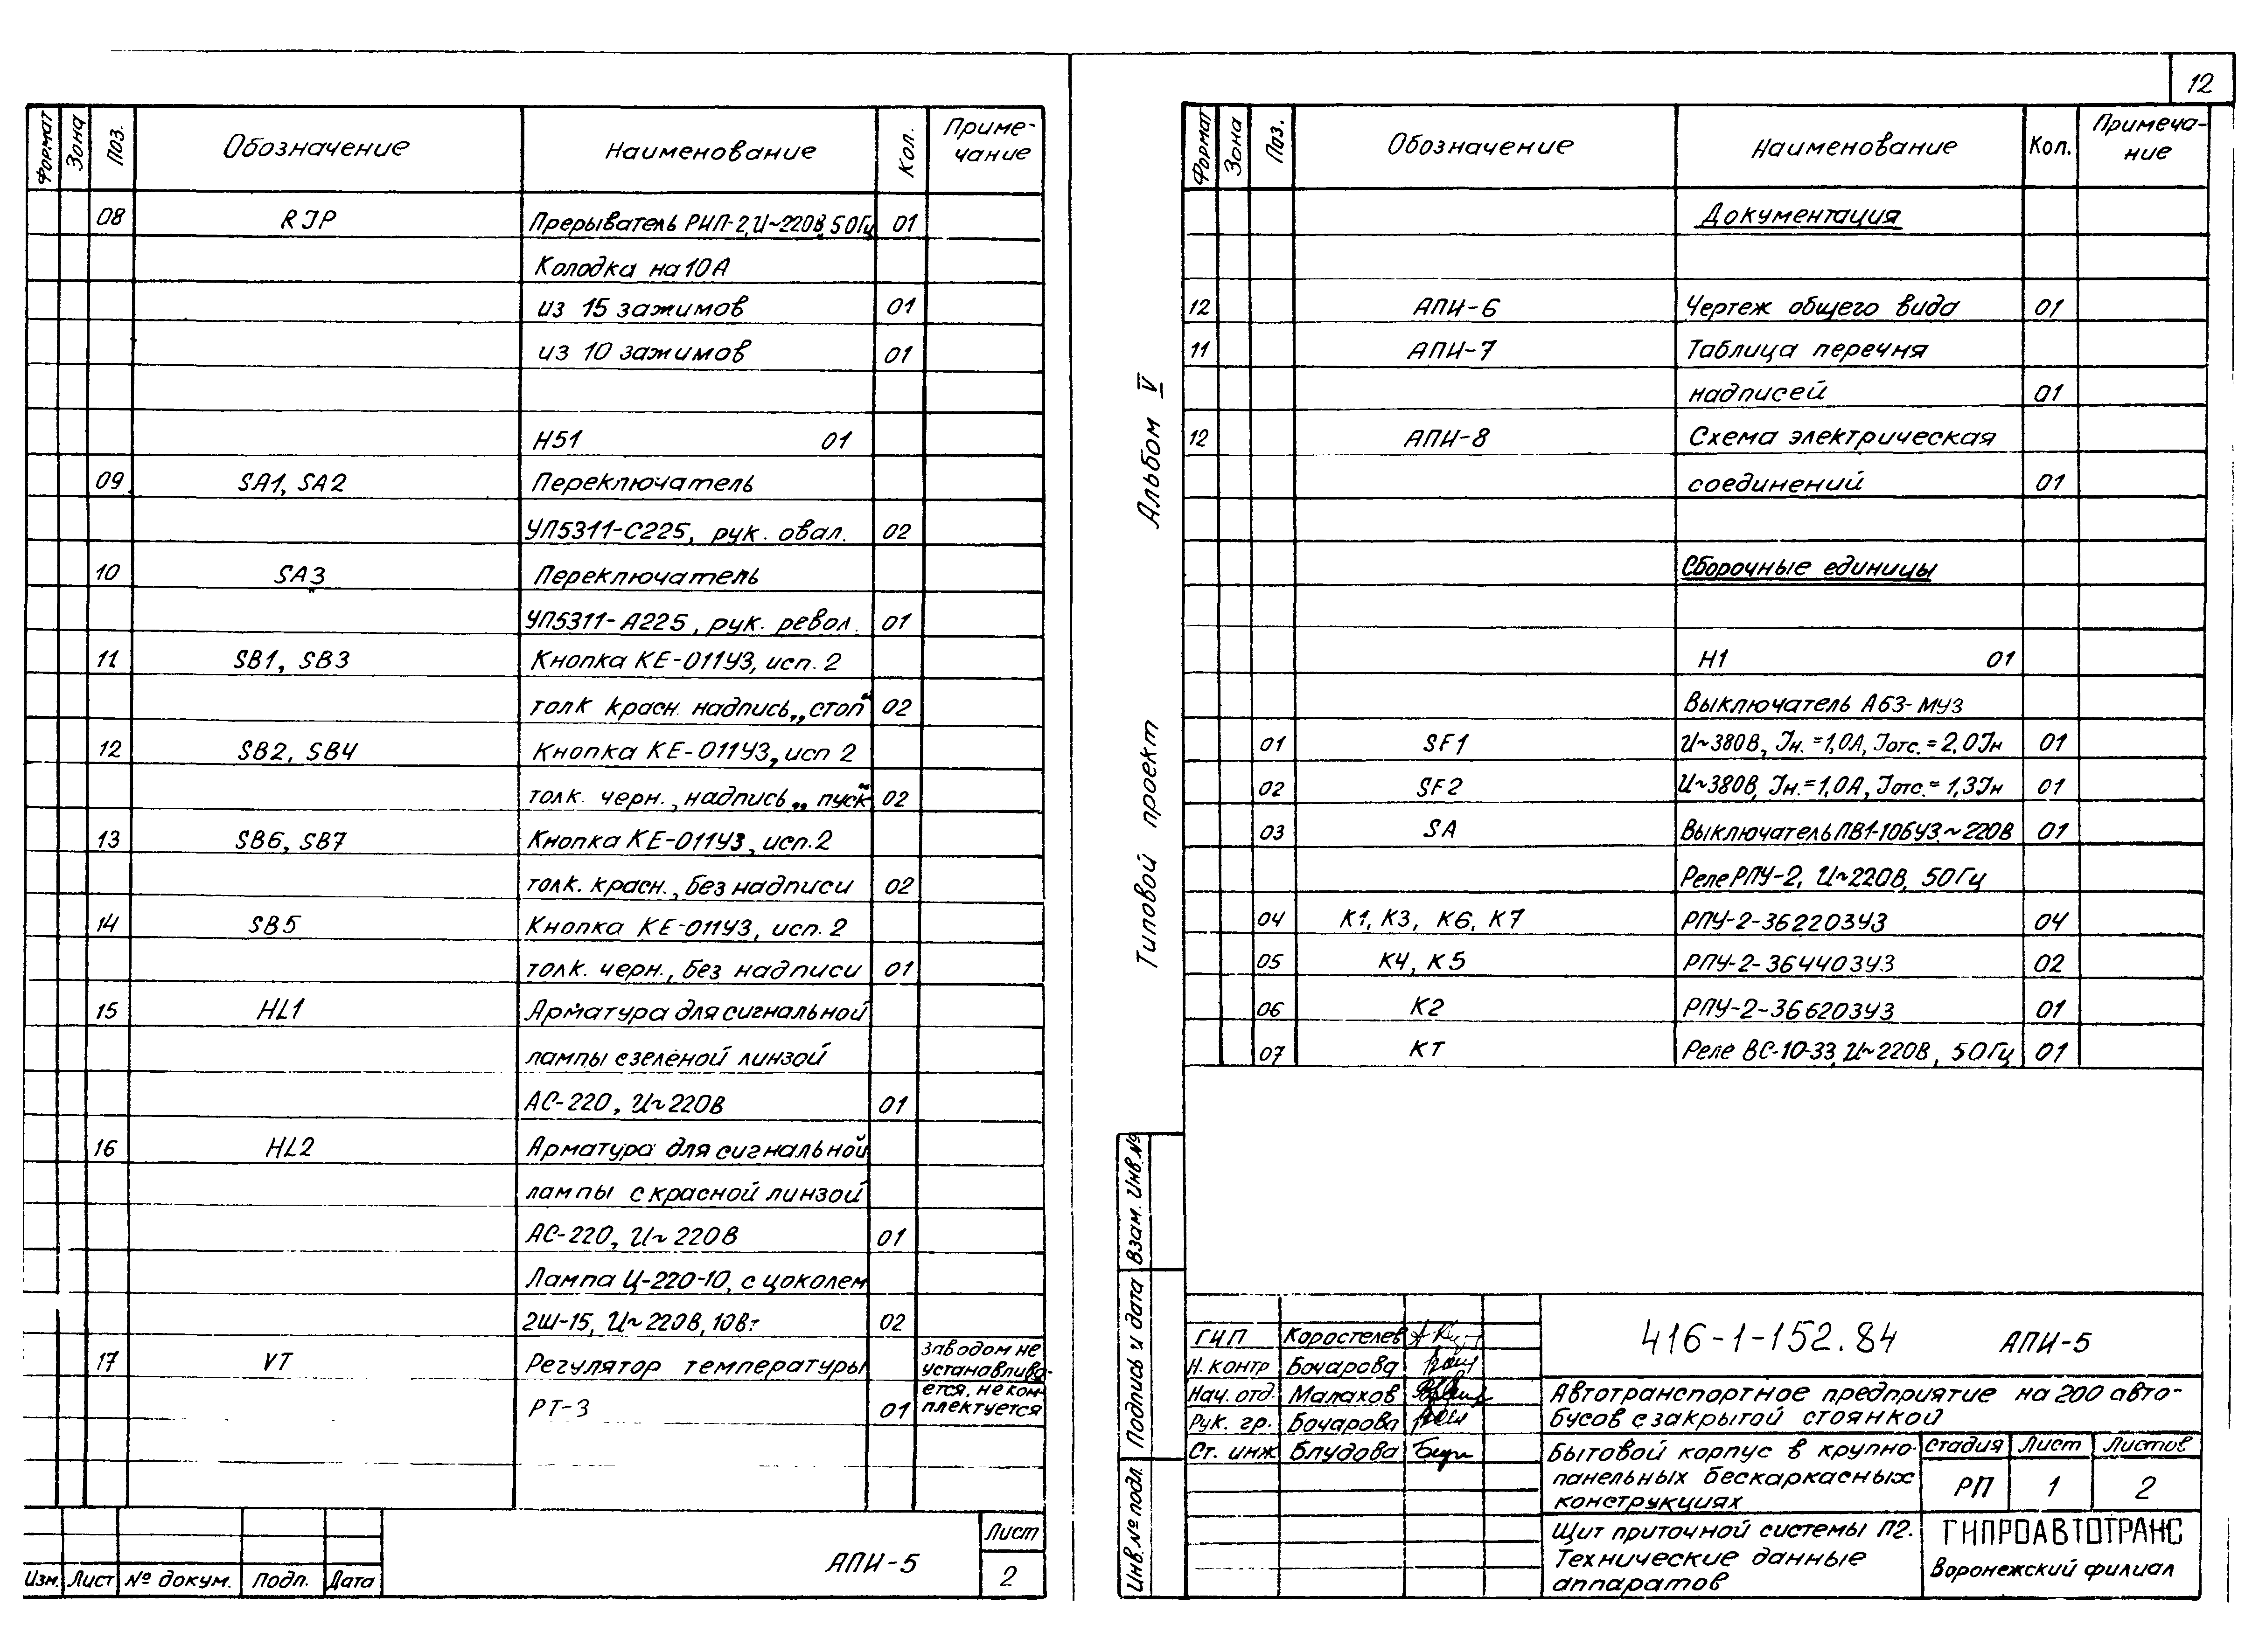 12
Формат Зона Поз. Обозначение Наименование Кол. Приме-
чание
08 RJP Прерыватель РИП-2, U~220В, 50Гц 01
Колодка на 10А
из 15 зажимов 01
из 10 зажимов 01
Н51 01
09 SA1, SA2 Переключатель
УП5311-С225, рук. овал. 02
10 SA3 Переключатель
УП5311-А225, рук. револ. 01
11 SB1, SB3 Кнопка КЕ-011У3, исп. 2
толк красн. надпись „стоп“ 02
12 SB2, SB4 Кнопка КЕ-011У3, исп 2
толк. черн., надпись „пуск“ 02
13 SB6, SB7 Кнопка КЕ-011У3, исп. 2
толк. красн., без надписи 02
14 SB5 Кнопка КЕ-011У3, исп. 2
толк. черн., без надписи 01
15 HL1 Арматура для сигнальной
лампы с зеленой линзой
АС-220, U~220В 01
16 HL2 Арматура для сигнальной
лампы с красной линзой
АС-220, U~220В 01
Лампа Ц-220-10, с цоколем
2Ш-15, U~220В, 10Вт 02
17 VT Регулятор температуры
РТ-3 01
заводом не
устанавлива-
ется, не ком-
плектуется
Изм. Лист № докум. Подп. Дата
АПИ-5
Лист
2
Альбом V
Типовой проект
Формат Зона Поз. Обозначение Наименование Кол. Примеча-
ние
Документация
12 АПИ-6 Чертеж общего вида 01
11 АПИ-7 Таблица перечня
надписей 01
12 АПИ-8 Схема электрическая
соединений 01
Сборочные единицы
Н1 01
Выключатель А63-МУ3
01 SF1 U~380В, Jн.=1,0А, Jотс.=2,0Jн 01
02 SF2 U~380В, Jн.=1,0А, Jотс.=1,3Jн 01
03 SA Выключатель ПВ1-10БУ3 ~220В 01
Реле РПУ-2, U~220В, 50Гц
04 К1, К3, К6, К7 РПУ-2-362203У3 04
05 К4, К5 РПУ-2-364403У3 02
06 К2 РПУ-2-366203У3 01
07 КТ Реле ВС-10-33, U~220В, 50Гц 01
Взам. Инв.№
Подпись и дата
Инв.№ подл.
ГИП Коростелев
Н. контр Бочарова
Нач. отд. Малахов
Рук. гр. Бочарова
Ст. инж Блудова
416-1-152.84 АПИ-5
Автотранспортное предприятие на 200 авто-
бусов с закрытой стоянкой
Бытовой корпус в крупно-
панельных бескаркасных
конструкциях
Стадия Лист Листов
РП 1 2
Щит приточной системы П2.
Технические данные
аппаратов
ГИПРОАВТОТРАНС
Воронежский филиал